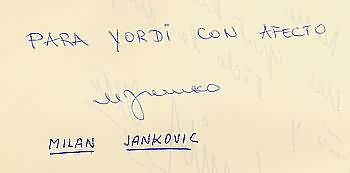 PARA YORDI CON AFECTO
MILAN JANKOVIC